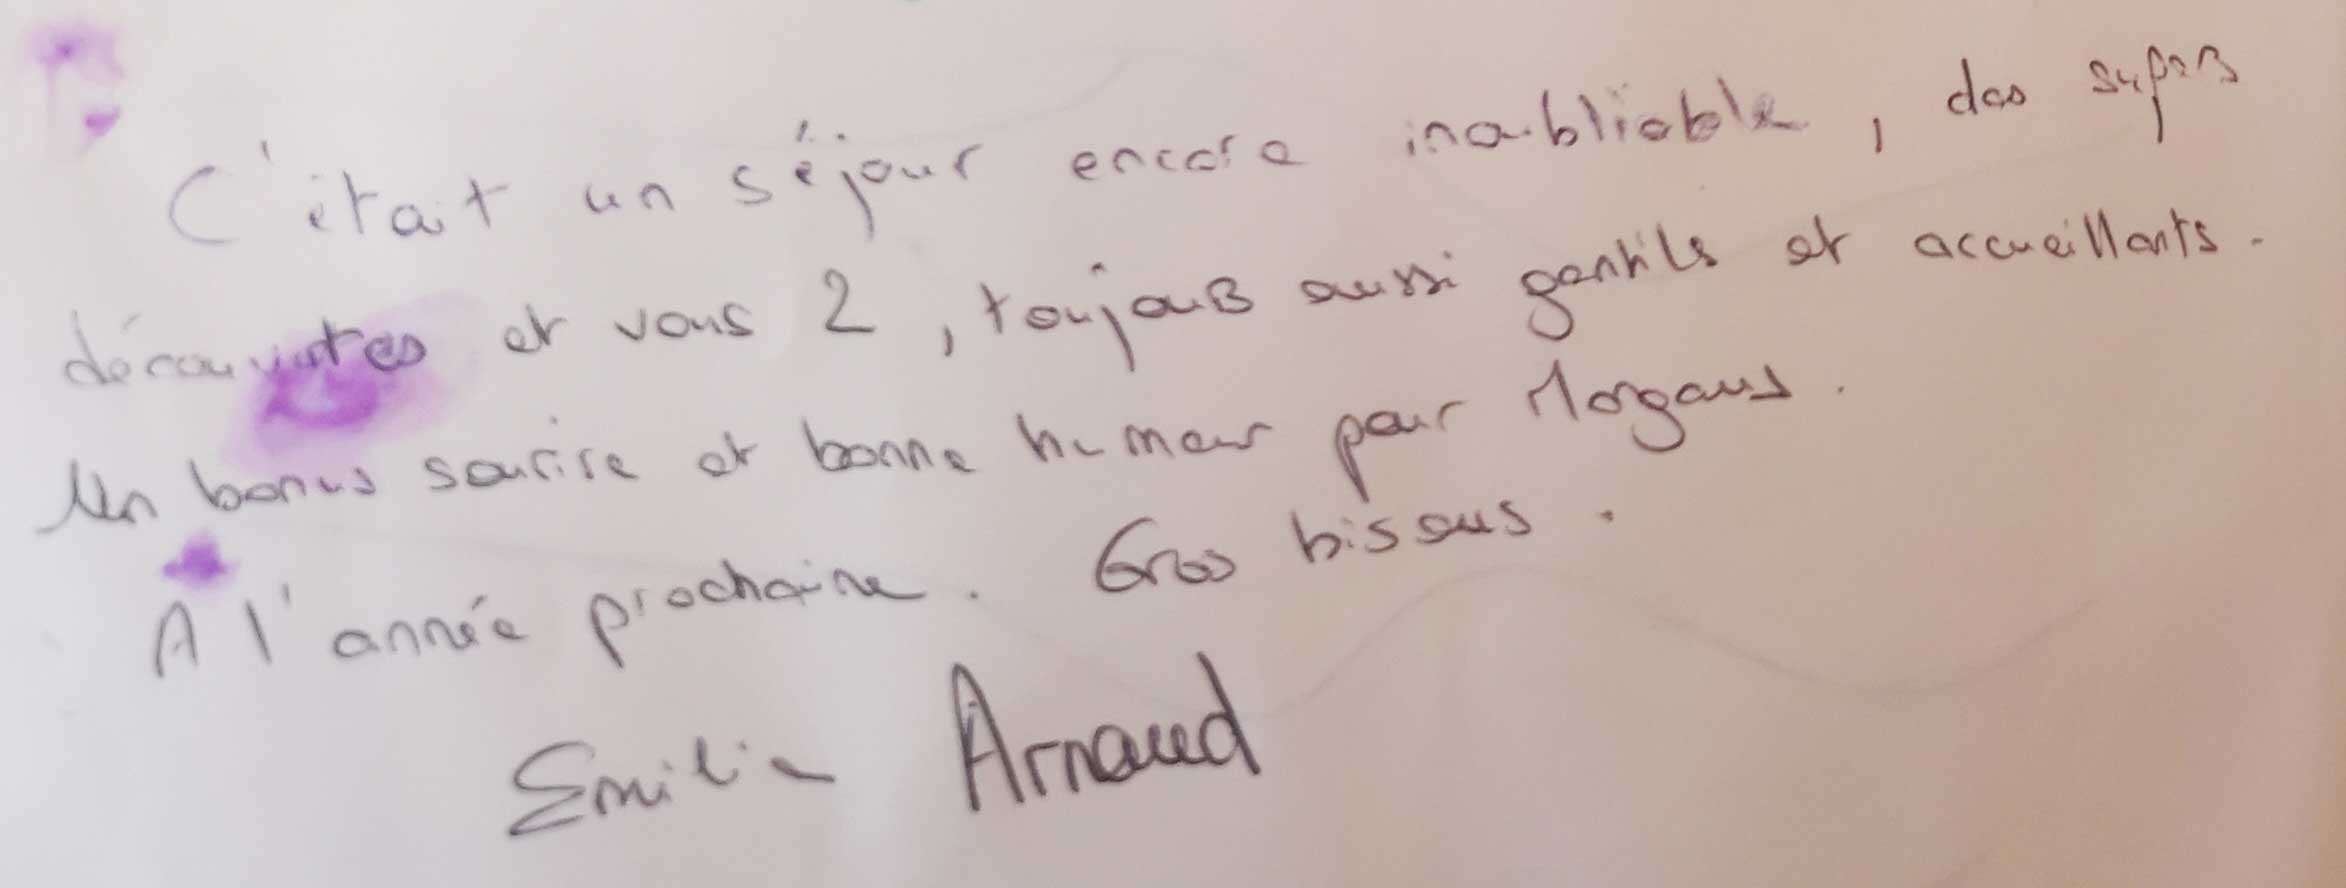 C'était un séjour encore inoubliable, des supers
découvertes et vous 2, toujours aussi gentils et accueillants.
Un bonus sourire et bonne humeur pour Morgans.
A l'année prochaine. Gros bisous.
Emilie Arnaud